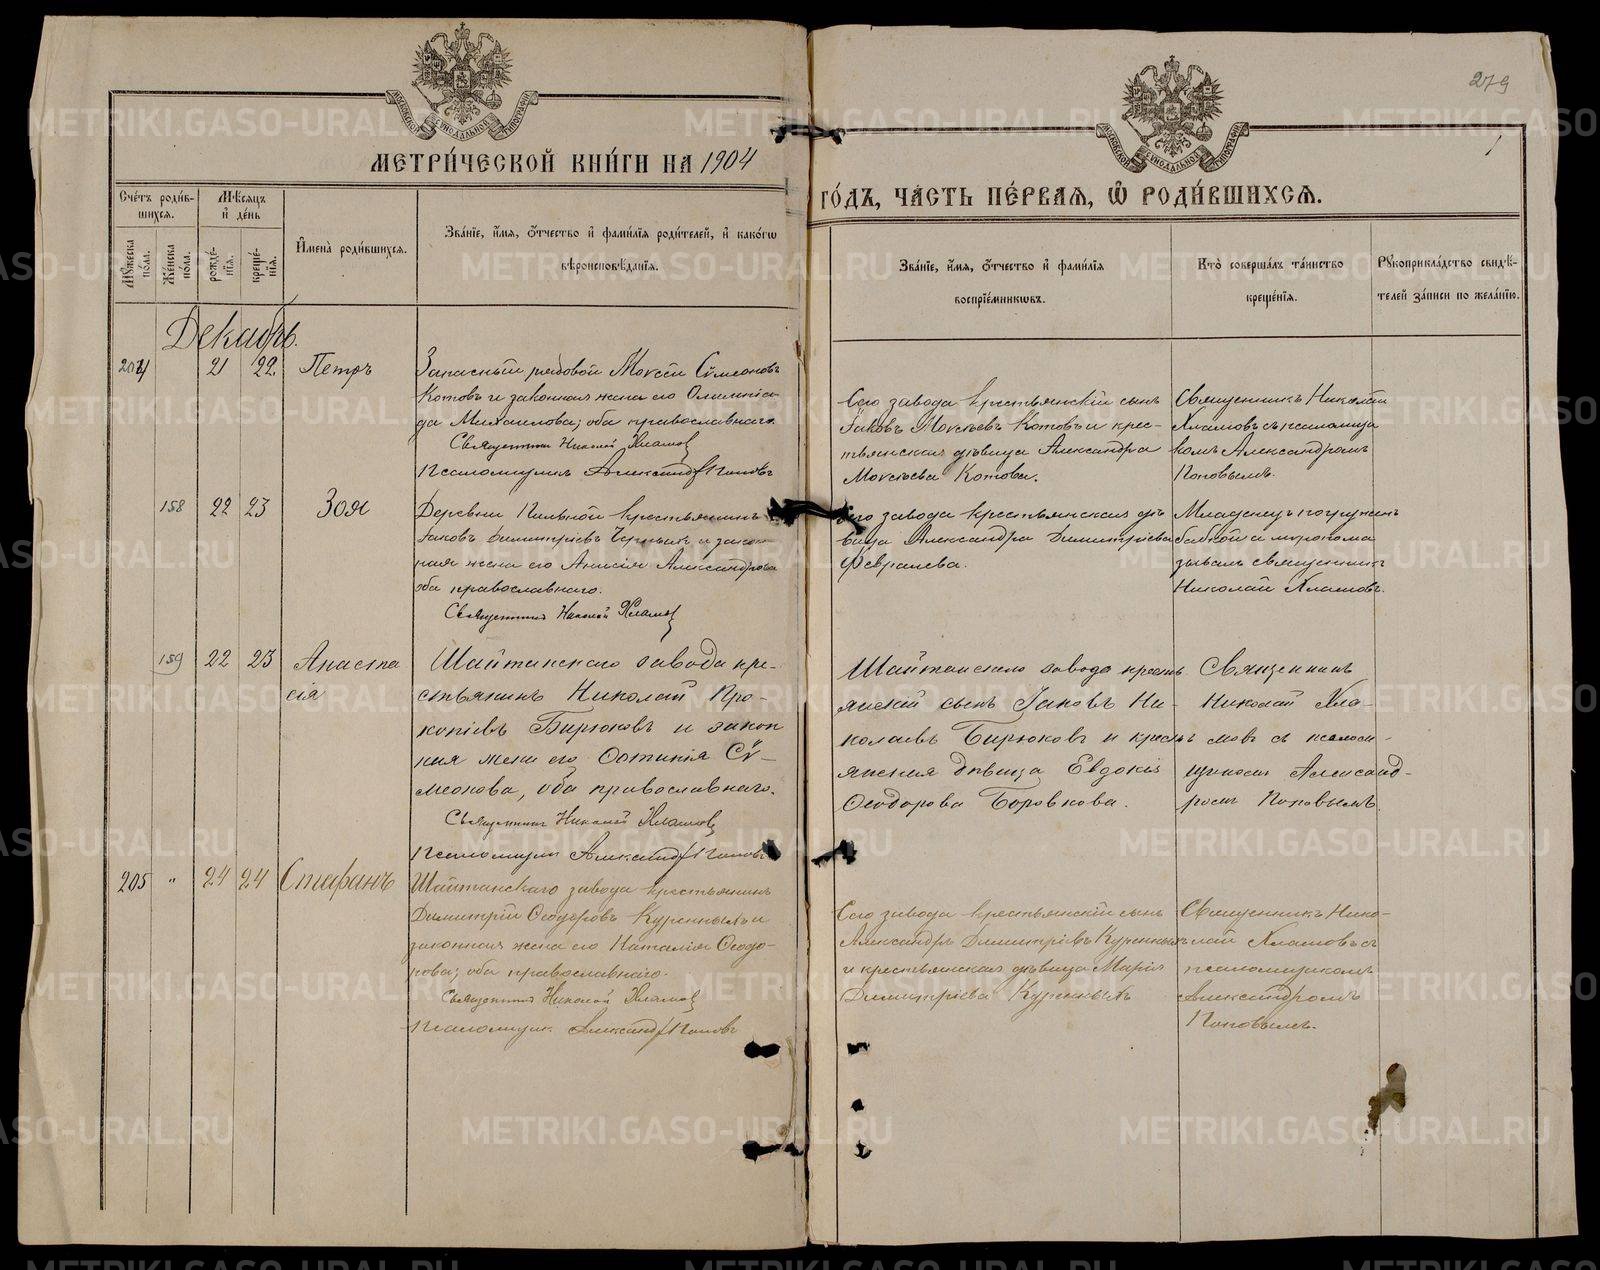 279
МОСКОВСКОЙ СѴНОДАЛЬНОЙ ТИПОГРАФІИ
МОСКОВСКОЙ СѴНОДАЛЬНОЙ ТИПОГРАФІИ
МЕТРИ́ЧЕСКОЙ КНИ́ГИ НА 1904
ГО́ДЪ, ЧА́СТЬ ПЕ́РВАЯ, Ѡ РОДИ́ВШИХСЯ.
Сче́тъ роди́в-
шихся.
Мѣ́сяцъ
и҆ де́нь
Мꙋ́жеска
по́ла.
Же́нска
по́ла.
рожде́-
нїя.
креще́-
нїя.
И҆мена̀ роди́вшихся.
Зва́нїе, и҆́мя, ѻ҆́тчество и҆ фамы́лїя роди́телей, и҆ како́гѡ
вѣроисповѣ́данїя.
Зва́нїе, и҆́мя, ѻ҆́тчество и҆ фами́лїя
воспрїе́мникѡвъ.
Кто̀ соверша́лъ та́инство
креще́нїя.
Рꙋкоприкла́дство свидѣ́-
телей за́писи по жела́нїю.
Декабрь.
204
21
22.
Петръ
Запасный рядовой Моѵсей Сѵмеоновъ
Котовъ и законная жена его Олимпіа-
да Михаилова; оба православнаго.
Священникъ Николай Хламов
Псаломщикъ Александръ Поповъ
Сего завода крестьянскій сынъ
Іаковъ Моѵсеевъ Котовъ и крес-
тьянская дѣвица Александра
Моѵсеева Котова.
Священникъ Николай
Хламовъ съ псаломщи
комъ Александромъ
Поповымъ.
158
22
23
Зоя
Деревни Пильной крестьянинъ
Іаковъ Димитріевъ Черныхъ и закон-
ная жена его Анисія Александрова
оба православнаго.
Священникъ Николай Хламов
Сего завода крестьянская дѣ-
вица Александра Димитріева
Февралева.
Младенец погружен
бабкой а мѵропома
зывалъ священникъ
Николай Хламовъ.
159
22
23
Анаста
сія
Шайтанскаго завода кре-
стьянинъ Николай Про-
копіевъ Бирюковъ и закон
ная жена его Фотинія Сѵ-
меонова, оба православнаго.
Священникъ Николай Хламов
Псаломщикъ Александръ Поповъ
Шайтанскаго завода кресть
янскій сынъ Іаковъ Ни-
колаевъ Бирюковъ и кресть
янская дѣвица Евдокія
Ѳеодорова Боровкова.
Священникъ
Николай Хла-
мовъ съ псалом-
щикомъ Александ-
ромъ Поповымъ.
205
"
24
24
Стефанъ
Шайтанскаго завода крестьянинъ
Димитрій Ѳеодоровъ Куренныхъ и
законная жена его Наталія Ѳеодо-
рова; оба православнаго.
Священникъ Николай Хламов
Псаломщик Александръ Поповъ
Сего завода крестьянскій сынъ
Александръ Димитріевъ Куренныхъ
и крестьянская дѣвица Марія
Димитріева Куренныхъ
Священникъ Нико-
лай Хламовъ съ
псаломщикомъ
Александромъ
Поповымъ.
METRIKI.GASO-URAL.RU